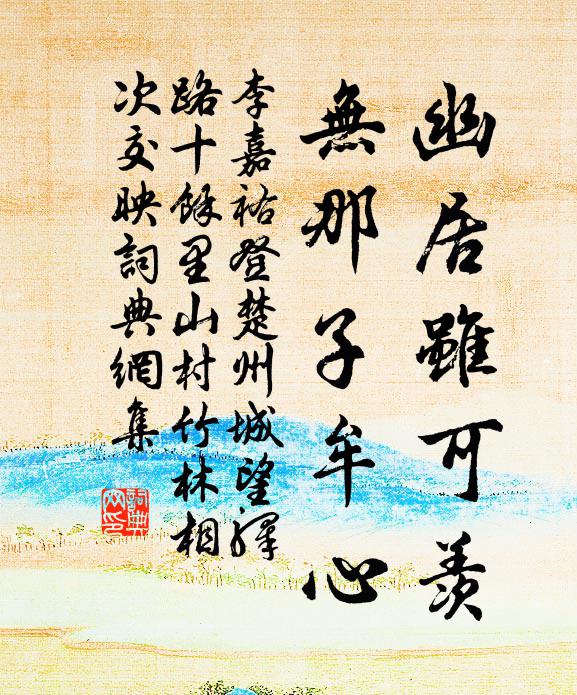 幽居雖可羨
無那子牟心
李嘉祐登楚州城望驛
路十餘里山村竹林相
次交映詞典網集